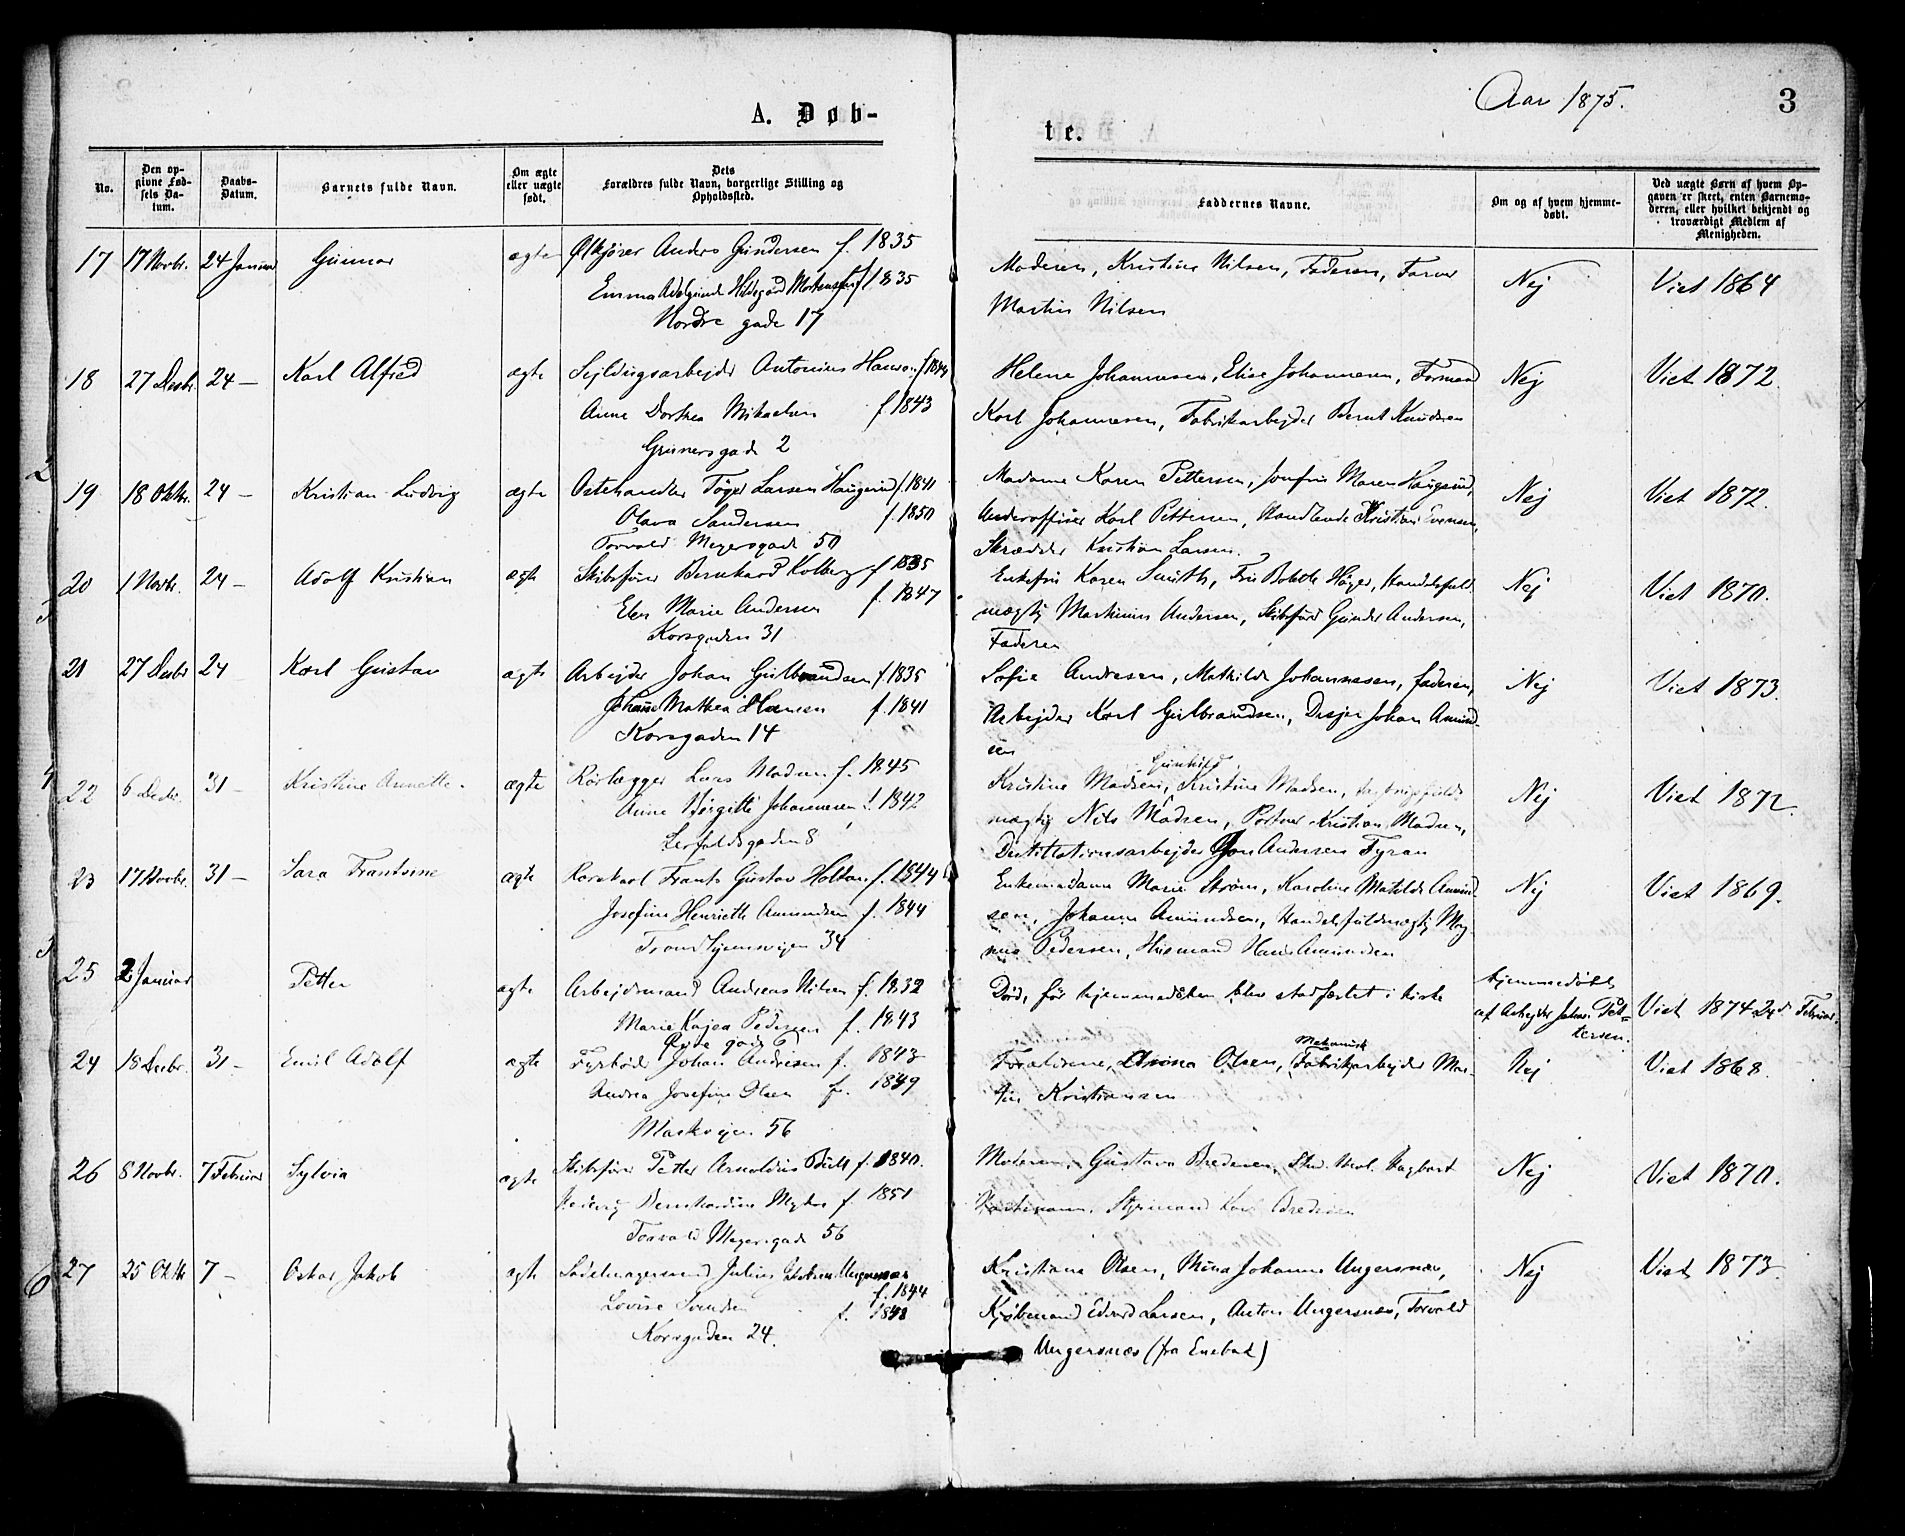 Aar 1875. 3
A. Døb-
te.
No.
Den opgivne Fødsels Datum.
Daabs-Datum.
Barnets fulde Navn.
Om ægte eller uægte født.
Dets Forældres fulde Navn, borgerlige Stilling og Opholdssted.
Faddernes Navne.
Om og af hvem hjemmedøbt.
Ved uægte Børn af hvem Opgaven er skeet, enten Barnemoderen, eller hvilket bekjendt og troværdigt Medlem af Menigheden.
17 17 Novbr. 24 Januar Gunnar ægte Ølkjører Anders Gundersen f. 1835
Emma Adelgunde Hildegard Mortensen f 1835
Nordre gade 17
Moderen, Kristine Nilsen, Faderen, Farver
Martin Nilsen
Nej Viet 1864
18 27 Decbr. 24 — Karl Alfred ægte Sejldugsarbejder Antonius Hansen f 1844
Anne Dorthea Mikaelsen f. 1843
Grünersgade 2
Helene Johannesen, Elise Johannesen, Formand
Karl Johannesen, Fabrikarbejder Bernt Knudsen
Nej Viet 1872.
19 18 Oktbr. 24 — Kristian Ludvig ægte Ostehandler Töger Larsen Haugerud f. 1841
Olava Sandersen f. 1850
Torvald Meyersgade 50
Madame Karen Pettersen, Jomfru Maren Haugerud,
Underofficer Karl Pettersen, Handlende Kristian Evensen,
Skrædder Kristian Larsen.
Nej Viet 1872.
20 1 Novbr. 24 — Adolf Kristian ægte Skibsfører Bernhard Kolberg f 1835
Elen Marie Andersen f. 1847
Korsgaden 31
Enkefru Karen Smith, Fru Bolette Høyer, Handelsfuld
mægtig Martinius Andersen, Skibsfører Gunder Andersen,
Faderen
Nej Viet 1870.
21 27 Decbr 24 Karl Gustav ægte Arbejder Johan Gulbrandsen f. 1835
Johanne Mathea Hansen f. 1841
Korsgaden 14
Sofie Andresen, Mathilde Johannesen, faderen,
Arbejder Karl Gulbrandsen, Drejer Johan Amund-
sen
Nej Viet 1873.
22 6 Decbr. 31 — Kristine Annette. ægte Rørlægger Lars Madsen f. 1845
Anne Birgitte Johannesen f. 1842
Lerfaldsgaden 8
Gunhild
Kristine Madsen, Kristine Madsen,
mægtig Nils Madsen, Portner Kristian Madsen,
Destillationsarbejder Jon Andersen Fyran
Nej Viet 1872.
23 17 Novbr. 31 — Sara Frantsine ægte Frants Gustav Holtan f. 1844
Josefine Henriette Amundsen f. 1844
Trondhjemsvejen 34
Enkemadame Marie Strøm, Karoline Matilde Amund
sen, Johanne Amundsen, Handelsfuldmægtig Mag
nus Pedersen, Husmand Hans Amundsen
Nej Viet 1869.
25 2 Januar Petter ægte Arbejdsmand Andreas Nilsen f. 1832
Marie Kajsa Pedersen f. 1843
Øvre gade 6
Død, før hjemmedåben blev stadfæstet i kirke
hjemmedøbt
af Arbejder Johan Pet-
tersen.
Viet 1874 2den Februar.
24 18 Decbr. 31 — Emil Adolf ægte Fyrbøder Johan Andresen f. 1843
Andrea Josefine Olsen f. 1849
Markvejen 56
Mekanisk
Forældrene, Anna Olsen, Fabrikarbejder Mar-
tin Kristiansen
Nej Viet 1868.
26 8 Novbr. 7 Februar Sylvia ægte Skibsfører Petter Arnoldus Bull f. 1840.
Hedevig Bernhardine Myhre f. 1851
Torvald Meyersgade 56
Moderen, Gustava Bredesen, Stud. Med. Dagbart
Styrmand Karl Bredesen
Nej Viet 1870.
27 25 Oktbr 7 — Oskar Jakob ægte Sadelmagersvend Julius Ungersnæs
f. 1844
Lovise Svendsen f. 1848
Korsgaden 24.
Kristiane Olsen, Mina Johanne Ungersnæs,
Kjøbmand Edvard Larsen, Anton Ungersnæs, Torvald
Ungersnæs (fra Enebak)
Nej Viet 1873.